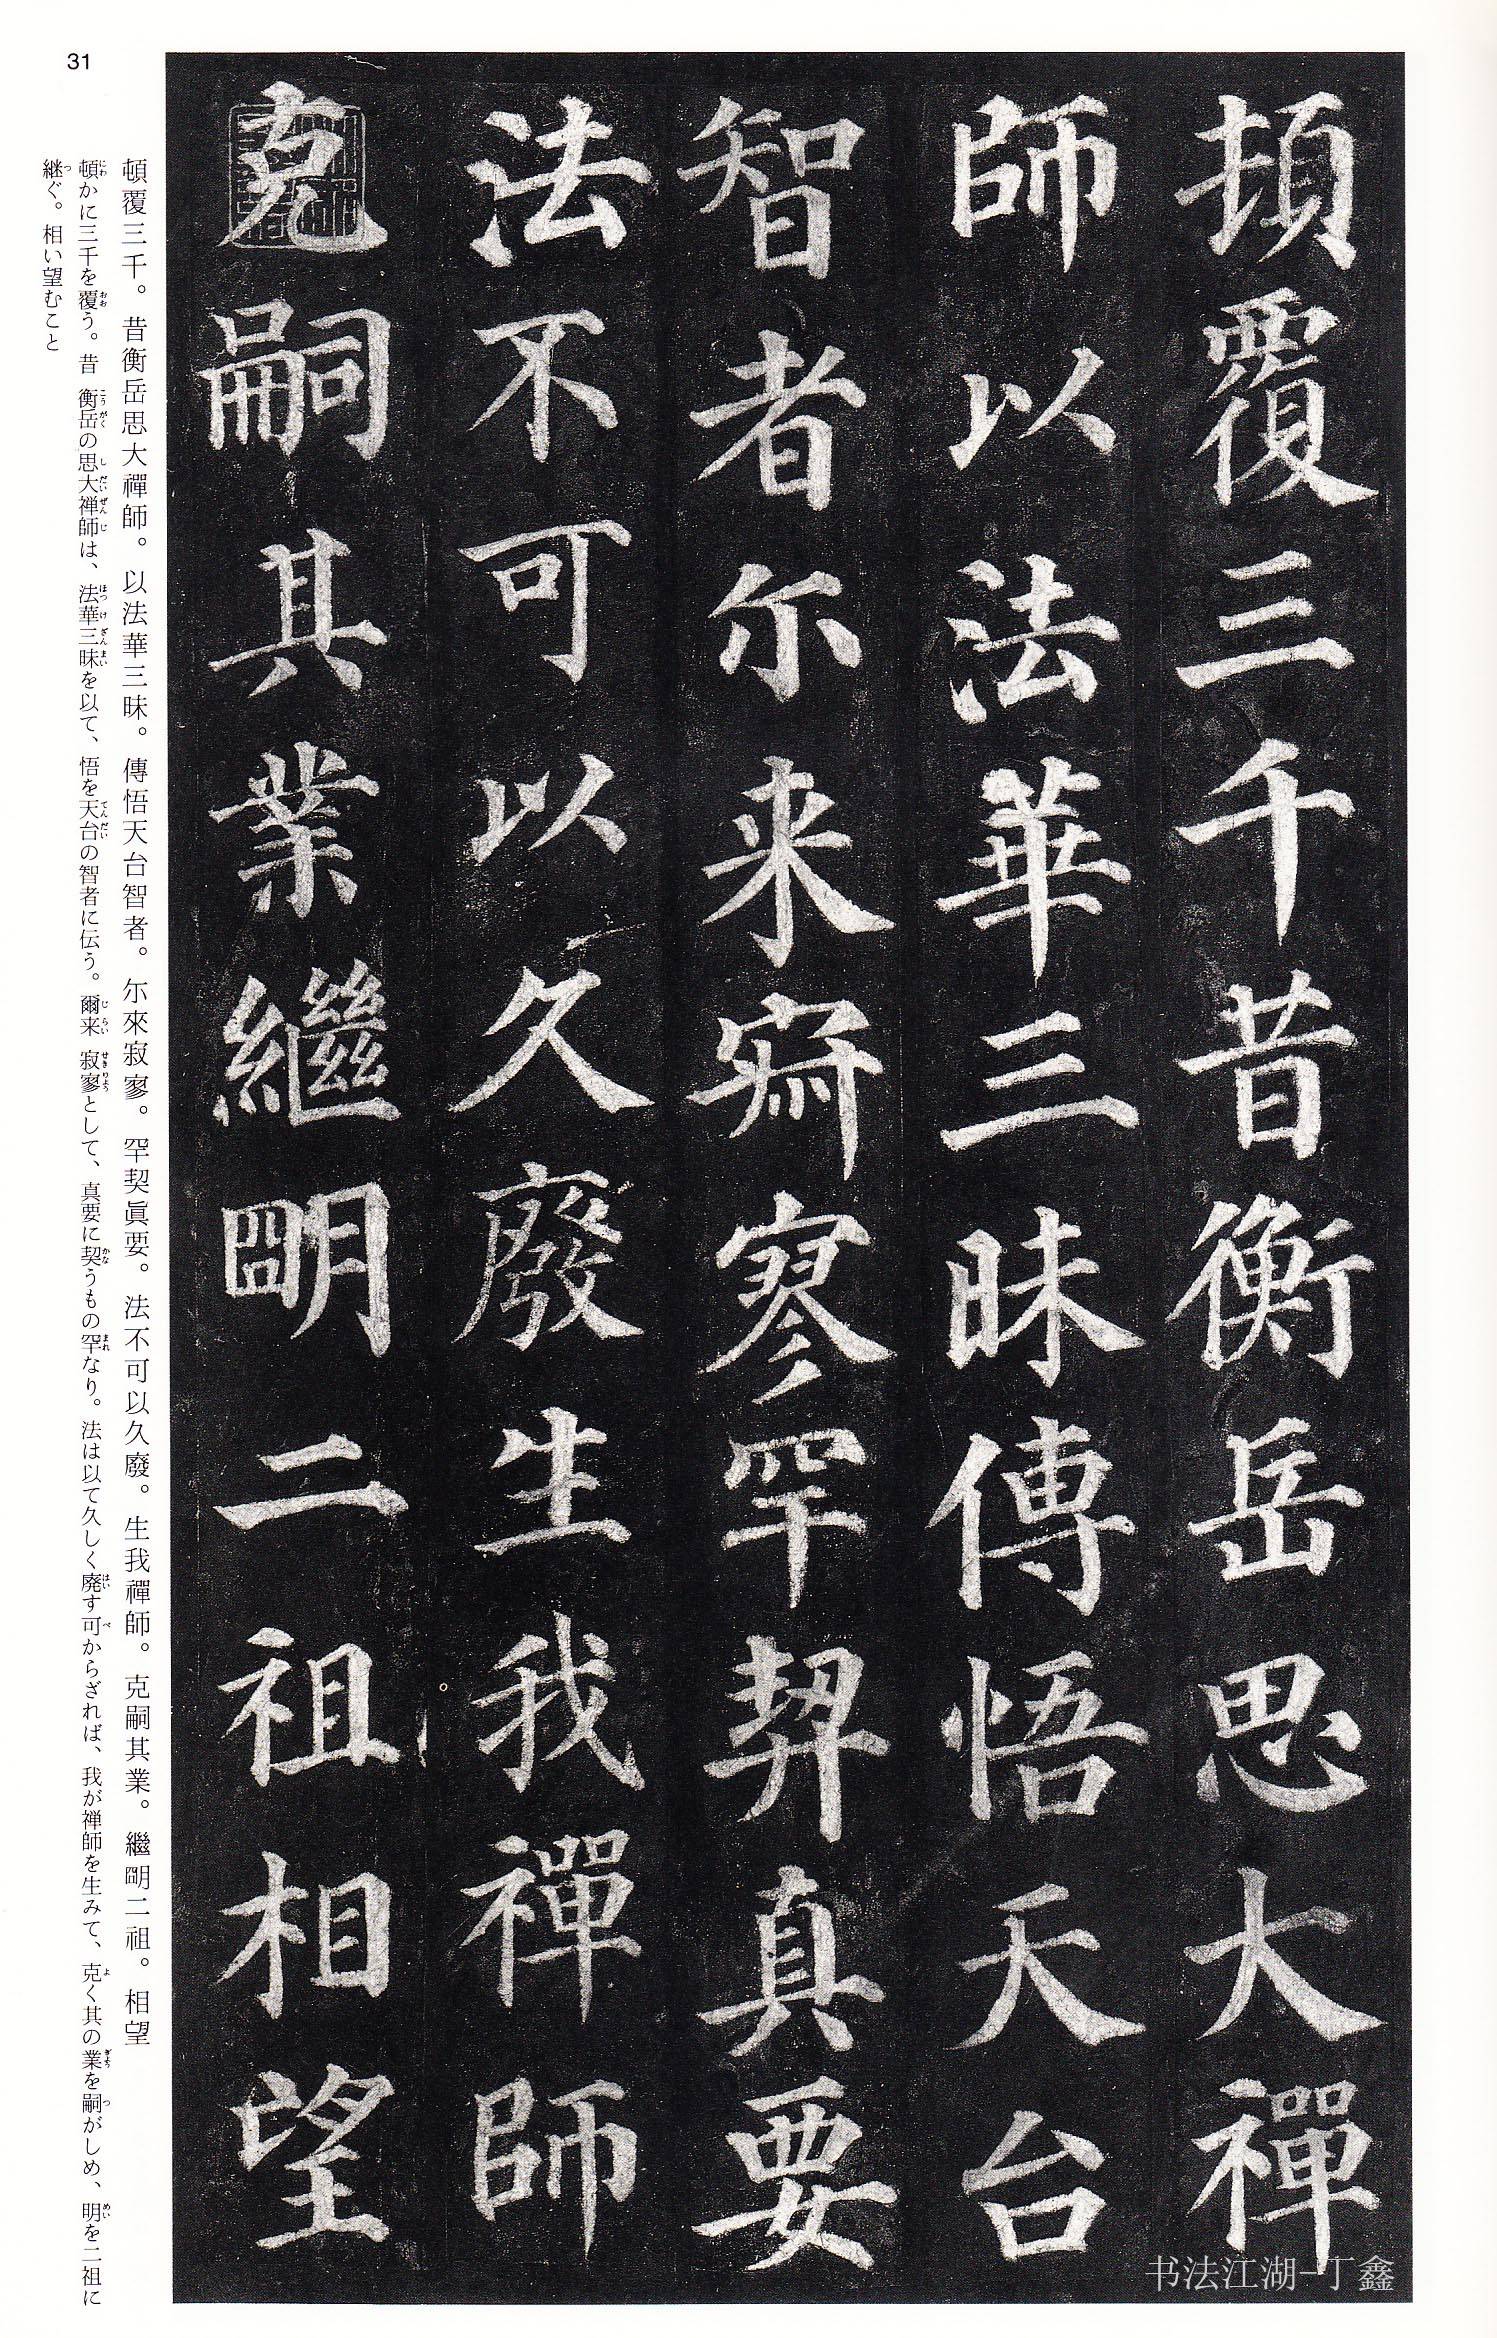 頓覆三千昔衡岳思大禪
師以法華三昧傳悟天台
智者尓来寂寥罕契真要
法不可以久廢生我禪師
克嗣其業繼明二祖相望
頓覆三千。昔衡岳思大禪師。以法華三昧。傳悟天台智者。尓來寂寥。罕契眞要。法不可以久廢。生我禪師。克嗣其業。繼明二祖。相望
頓かに三千を覆う。昔 衡岳の思大禅師は、法華三昧を以て、悟を天台の智者に伝う。爾来 寂寥として、真要に契うもの罕なり。法は以て久しく廃す可からざれば、我が禅師を生みて、克く其の業を嗣がしめ、明を二祖に
継ぐ。相い望むこと
31
书法江湖-丁鑫